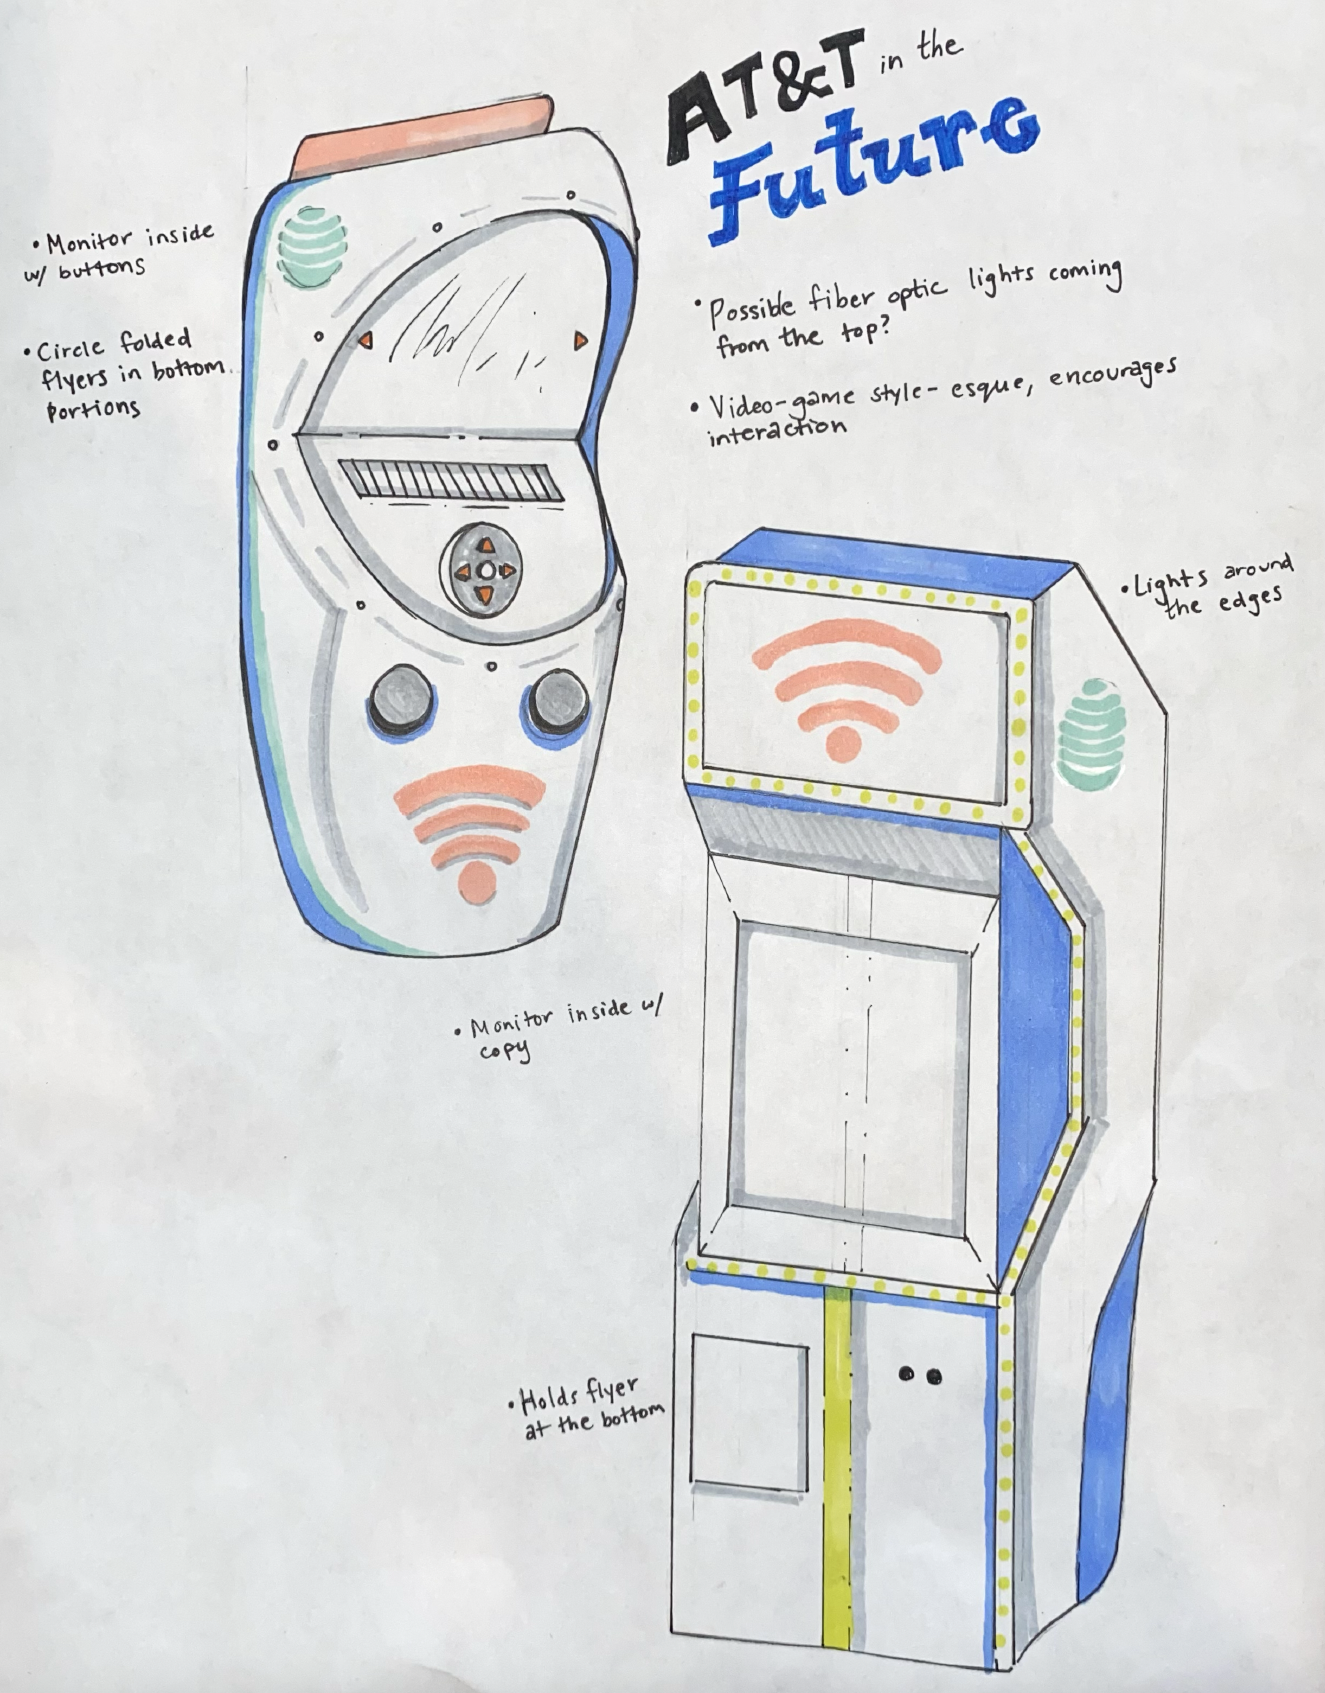 AT&T in the
Future
• Monitor inside
w/ buttons
• Circle folded
flyers in bottom
portions
• Possible fiber optic lights coming
from the top?
• Video-game style-esque, encourages
interaction
• Lights around
the edges
• Monitor inside w/
copy
• Holds flyer
at the bottom